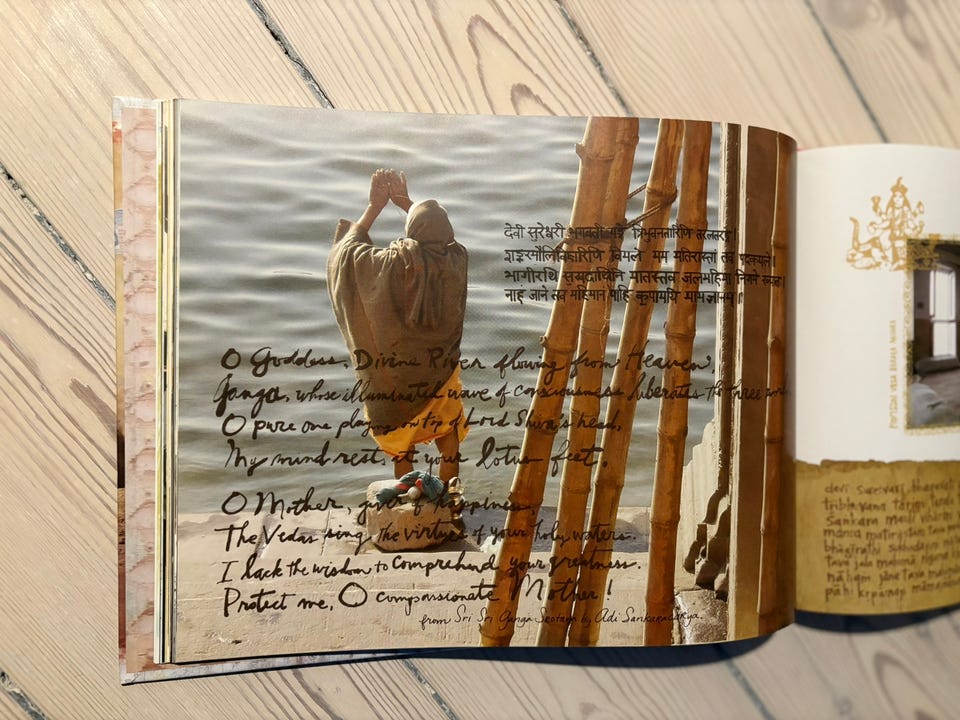 देवी सुरेश्वरी भगवती गङ्गे त्रिभुवनतारिणि तरलतरङ्गे।
शङ्करमौलिविहारिणि विमले मम मतिरास्तां तव पदकमले।
भागीरथि सुखदायिनि मातस्तव जलमहिमा निगमे ख्यातः।
नाहं जाने तव महिमानं पाहि कृपामयि मामज्ञानम्॥
O Goddess, Divine River flowing from Heaven,
Ganga, whose illuminated wave of consciousness liberates the three
O pure one playing on top of Lord Shiva's head,
My mind rests at your lotus feet.
O Mother, giver of happiness,
The Vedas sing the virtues of your holy waters.
I lack the wisdom to comprehend your greatness.
Protect me, O compassionate Mother!
from Sri Sri Ganga Stotam by Adi Sankaracarya.
devi suresvari bhagavati
tribhuvana tarini
sankara mauli
mama matirastam
bhagirathi sukhadayini
tava jala mahima
naham jane tava
pahi krpamayi